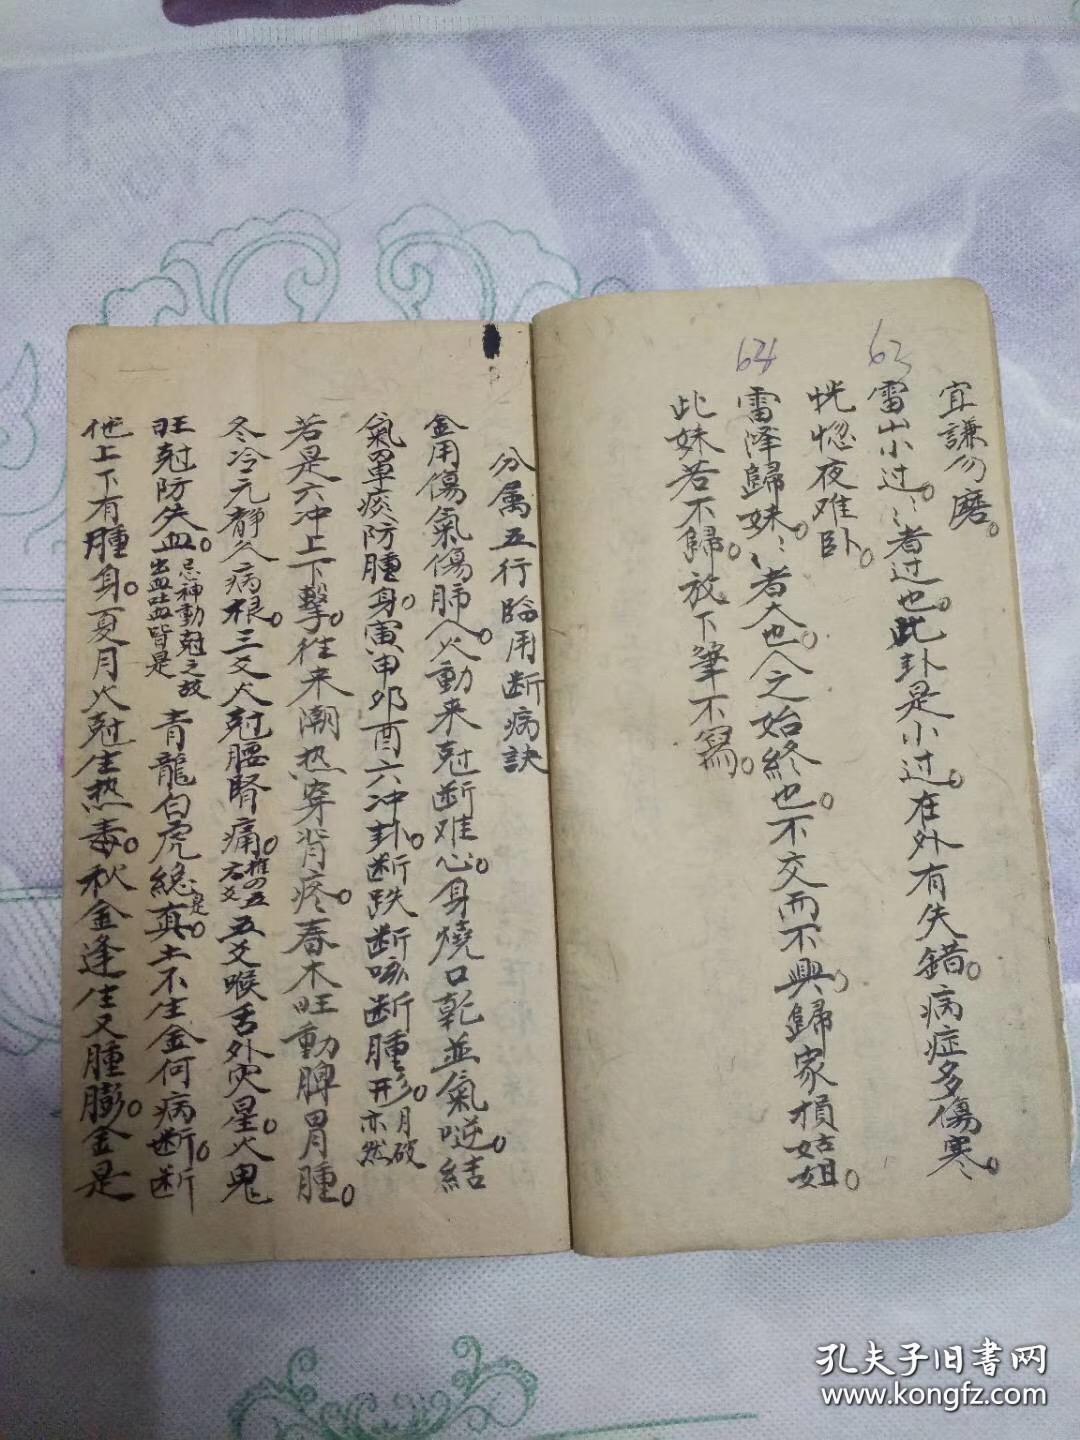 宜謙勿磨。
63
雷山小过。〻者过也。此卦是小过。在外有失錯。病症多傷寒。
恍惚夜难卧。
64
雷泽歸妹。〻者大也。人之始終也。不交而不興。歸家損姑姐。
此妹若不歸。放下筆不寫。
分属五行臨用断病訣
金用傷氣傷肺。火動来尅断难心。身燒口乾並氣哽。結
氣單痰防腫身。寅申卯酉六冲卦。断跌断咳断腫形。月破亦然
若是六冲上下擊。往来潮热穿背疼。春木旺動脾胃腫。
冬冷元靜久病根。三爻火尅腰腎痛。五爻喉舌外灾星。火鬼
旺尅防失血。忌神動尅之故出血吐血皆是 青龍白虎總是真。土不生金何病断。断
他上下有腫身。夏月火尅生热毒。秋金逢生又腫膨。金是
孔夫子旧書网
www.kongfz.com